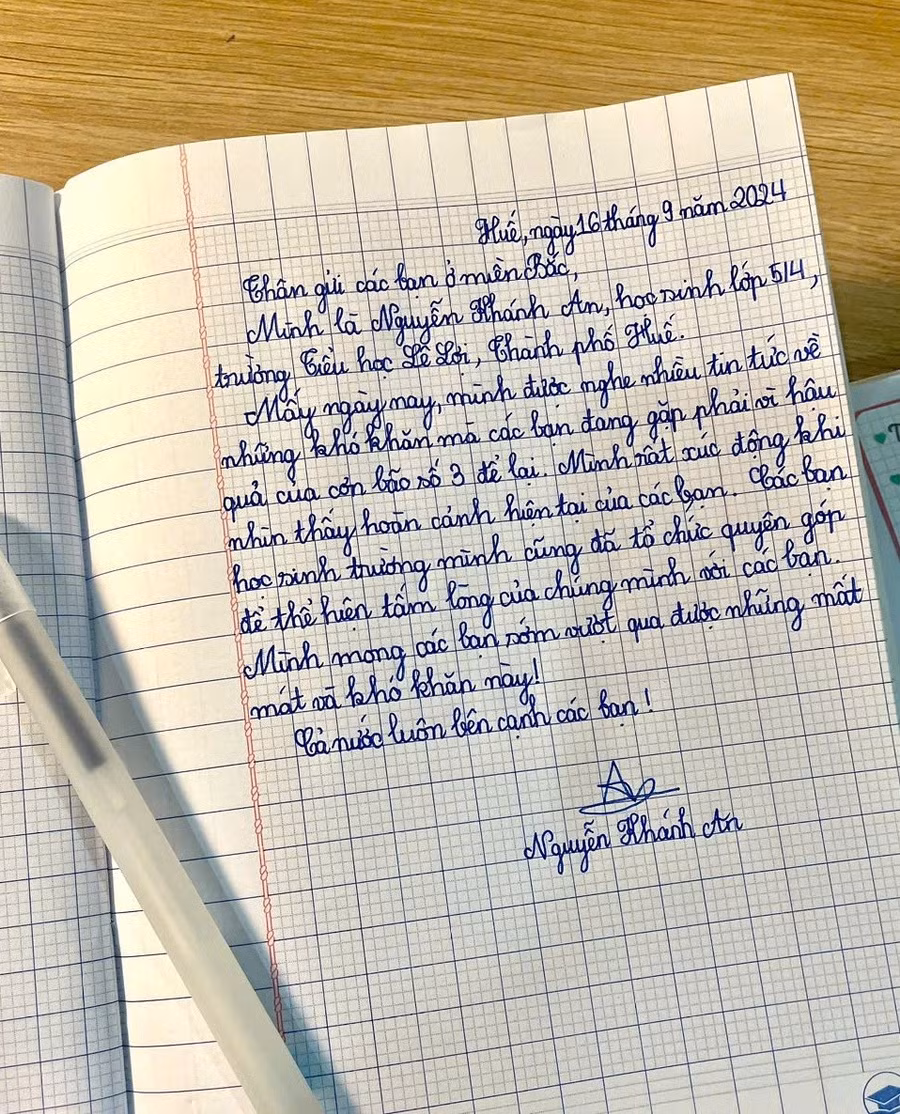 Huế, ngày 16 tháng 9 năm 2024
Thân gửi các bạn ở miền Bắc,
Mình là Nguyễn Khánh An, học sinh lớp 5/4,
trường Tiểu học Lê Lợi, Thành phố Huế.
Mấy ngày nay, mình được nghe nhiều tin tức về
những khó khăn mà các bạn đang gặp phải vì hậu
quả của cơn bão số 3 để lại. Mình rất xúc động khi
nhìn thấy hoàn cảnh hiện tại của các bạn. Các bạn
học sinh trường mình cũng đã tổ chức quyên góp
để thể hiện tấm lòng của chúng mình với các bạn.
Mình mong các bạn sớm vượt qua được những mất
mát và khó khăn này!
Cả nước luôn bên cạnh các bạn!
An
Nguyễn Khánh An